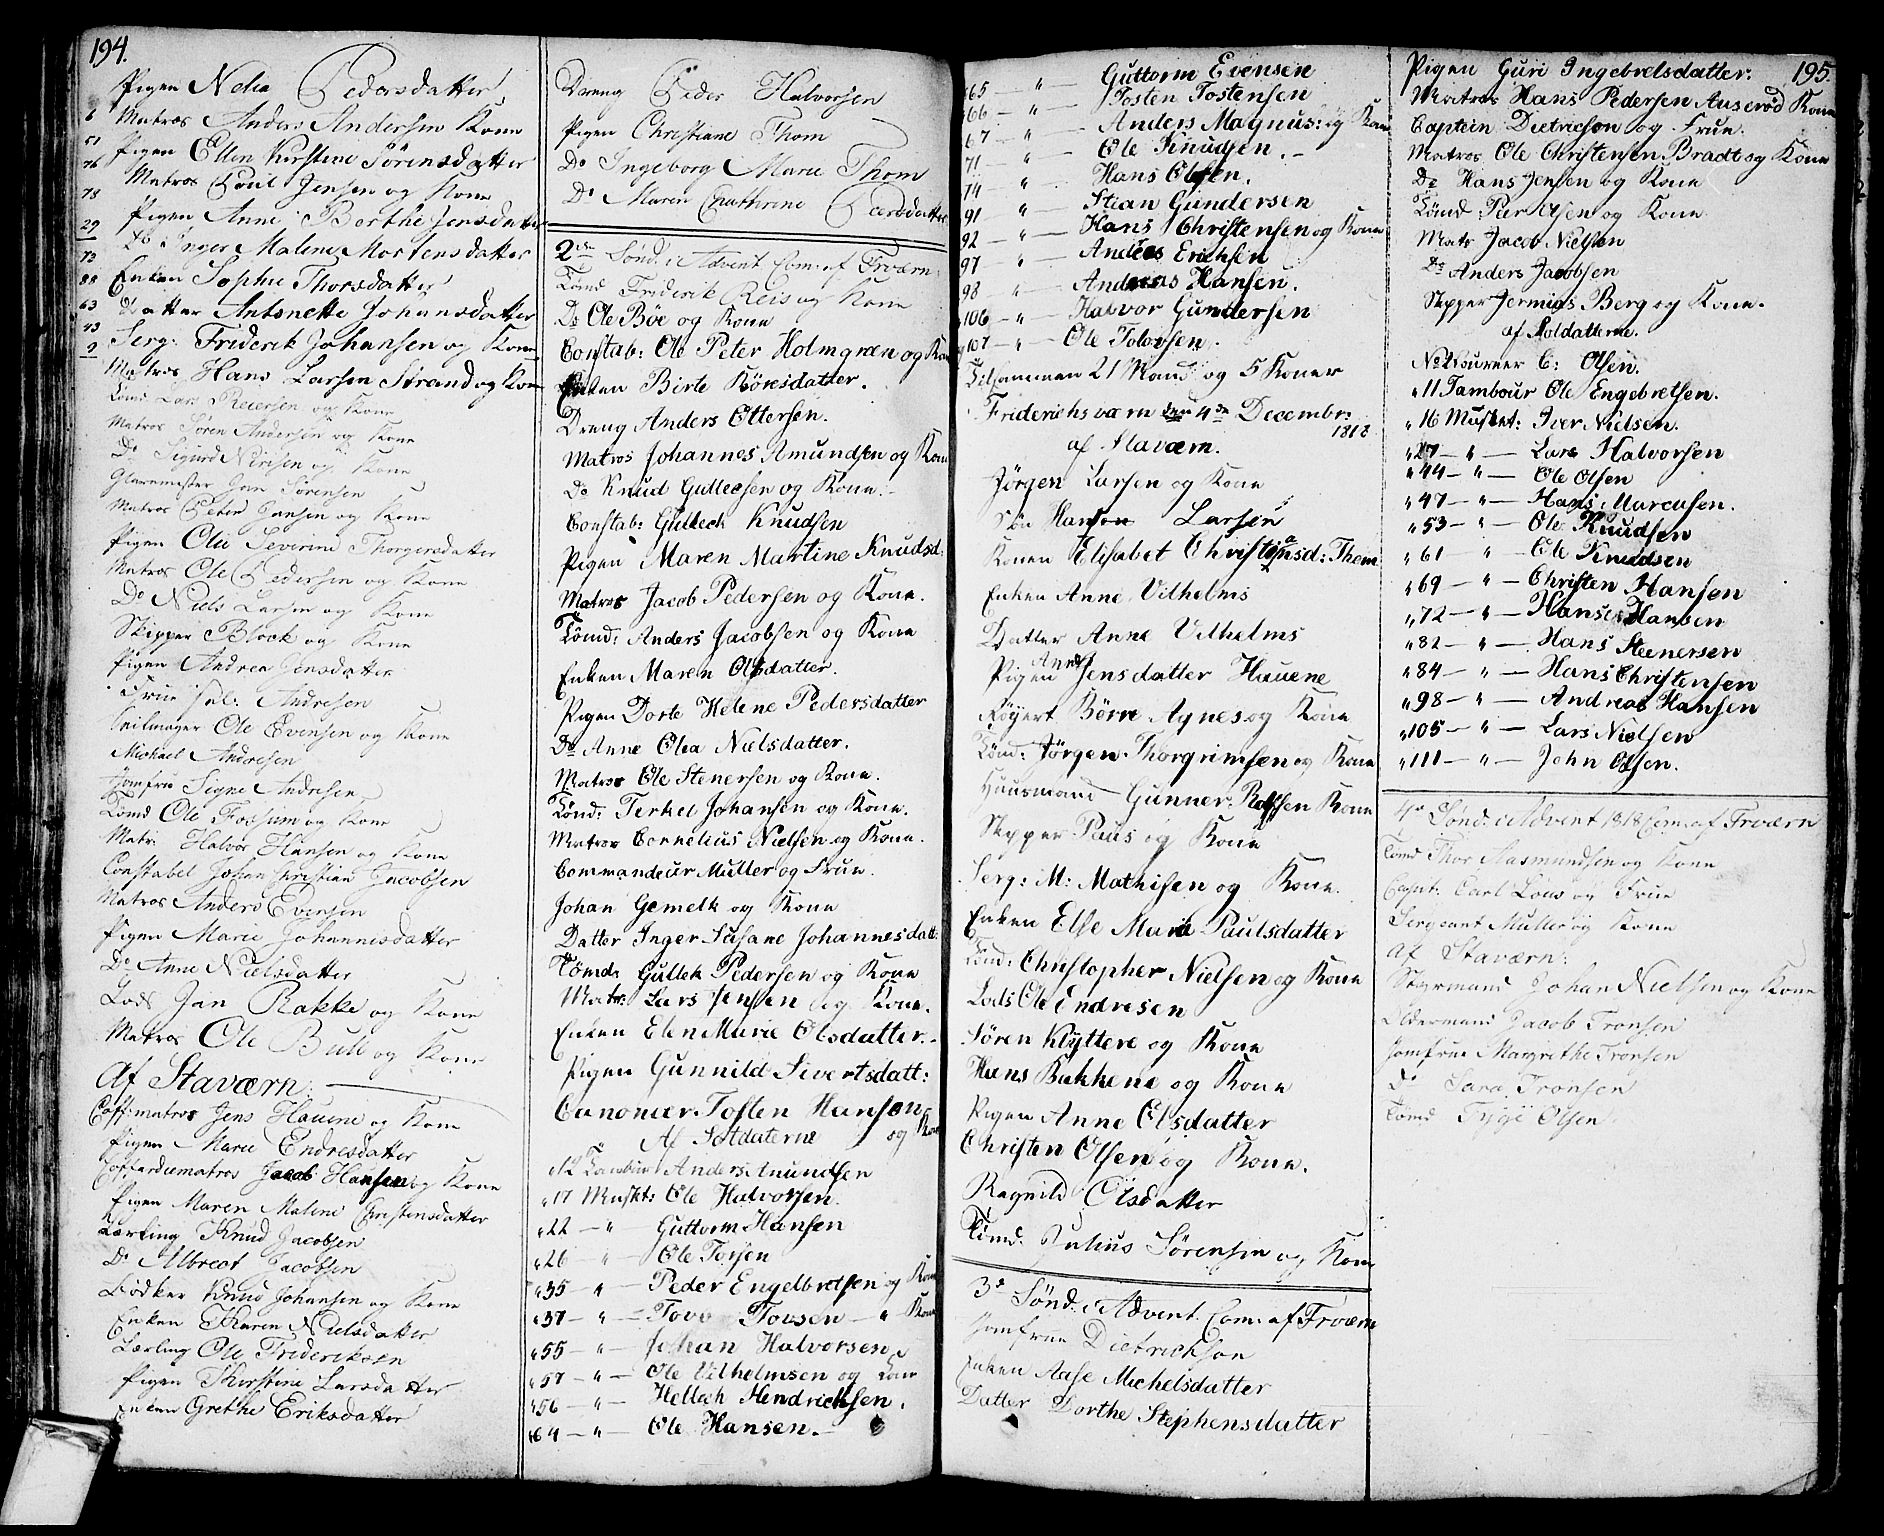 194.
Pigen Nelia Pedersdatter
6 Matros Anders Andersen Kone
51 Pigen Ellen Kirstine Sörensdatter
76 Matros Poul Jensen og Kone
78 Pigen Anne Berthe Jensdatter
29 Do Inger Malene Mortensdatter
73 Enken Sophie Thorsdatter
88 Datter Antonette Johansdatter
63 Serg: Friderik Johansen og Kone
43
9 Matros Hans Larsen Strand og Kone
Tömd Lars Reiersen og Kone
Matros Sören Andersen og Kone
Do Sigurd Nirisen og Kone
Glarmester Jens Sörensen
Matros Peter Jansen og Kone
Pigen Olie Severine Thorgersdatter
Matros Ole Pedersen og Kone
Do Niels Larsen og Kone
Skipper Block og Kone
Pigen Andrea Jensdatter
Frue sal. Andresen
Seilmager Ole Evensen og Kone
Michael Andresen
Jomfru Signe Andresen
Tömd Ole Fossum og Kone
Matr: Halvor Hansen og Kone
Constabel Johan Christian Jacobsen
Matros Anders Evensen
Pigen Marie Johannisdatter
Do Anne Nielsdatter
Lods Jan Rakke og Kone
Matros Ole Bull og Kone
Af Staværn:
Coff:matros Jens Hauene og Kone
Pigen Marie Endresdatter
Cofferdiematros Jacob Hansen og Kone
Pigen Maren Malene Christensdatter
Lærling Knud Jacobsen
Do Albrect Jacobsen
Bödker Knud Johansen og Kone
Enken Karen Nielsdatter
Lærling Ole Frideriksen
Pigen Kirstine Larsdatter
Enken Grethe Eriksdatter
Dreng Peder Halvorsen
Pigen Christiane Thom
Do Ingeborg Marie Thom
Do Maren Cathrine Peersdatter
2den Sönd: i Advent Com: af Frværn:
Tömd Friderik Reis og Kone
Do Ole Böe og Kone
Constab: Ole Peter Holmgren og Kone
Enken Birte Töresdatter.
Dreng Anders Ottersen.
Matros Johannes Amundsen og Kone
Do Knud Gullecsen og Kone.
Constab: Gulleck Knudsen
Pigen Maren Martine Knudsd:
Matros Jacob Pedersen og Kone.
Tömd: Anders Jacobsen og Kone
Enken Maren Olsdatter.
Pigen Dorte Helene Pedersdatter
Do Anne Olea Nielsdatter.
Matros Ole Stenersen og Kone.
Tömd: Terkel Johansen og Kone.
Matros Cornelius Nielsen og Kone.
Commandeur Muller og Frue.
Johan Gemelk og Kone
Datter Inger Susane Johannesdatt:
Tömd: Gullek Pedersen og Kone
Matr: Lars Jensen og Kone.
Enken Elen Marie Olsdatter.
Pigen Gunnild Sivertsdatt:
Canoneer Tosten Hansen og Kone
Af Soldaterne
12 Tambur Anders Anundsen
" 17 Muskt: Ole Halvorsen.
" 22 — " Guttorm Hansen
" 26 " — Ole Torsen
" 35 " — Peder Engelbretsen og Kone
" 37 — " — Tovs Tovsen — " Kone
" 55 — " — Johan Halvorsen
" 57 — " — Ole Vilhelmsen og Kone
" 56 — " — Hellech Hendrichsen.
" 64 — " — Ole Hansen.
65 — " Guttorm Evensen
66 — " Tosten Tostensen
67 — " Anders Magnus: og Kone
71 — " Ole Knudsen.
74 " — Hans Olsen.
91 " — Stian Gundersen
92 — " — Hans Christensen og Kone
97 — " — Anders Erichsen
98 " — Andreas Hansen.
" 106 — " — Halvor Gundersen
" 107 — " — Ole Tolovsen.
Tilsammen 21 Mand og 5 Koner
Friderichsværn den 4de Decembr: 1818
af Staværn.
Jörgen Larsen og Kone
Sön Hanson Larsen
Konen Elisabet Christiansd: Thom
Enken Anne Vilhelms
Datter Anne Vilhelms
Pigen Anne Jensdatter Hauene
Röyert Börre Agnes og Kone
Tömd: Jörgen Thorgrimsen og Kone
Huusmand Gunner Rolfsen Kone
Skipper Paus og Kone
Serg: M: Mathisen og Kone.
Enken Else Maria Paulsdatter
Tömd: Christopher Nielsen og Kone
Lods Ole Endresen
Sören Klyttere og Kone
Hans Bakkene og Kone
Pigen Anne Olsdatter
Christen Olsen og Kone.
Ragnild Olsdatter
Tömd: Julius Sörensen og Kone
3de Sönd: i Advent. Com: af Frværn
Jomfrue Dietrichson
Enken Aase Michelsdatter
Datter Dorthe Stephensdatter
195.
Pigen Guri Ingebretsdatter.
Matros Hans Pedersen Auseröd Kone
Captein Dietricson og Frue.
Matros Ole Christensen Bradt og Kone
Do Hans Jensen og Kone
Tömd: Peer Olsen og Kone
Matr Jacob Nielsen
Do Anders Jacobsen
Skipper Jermias Berg og Kone.
af Soldatterne.
No 2 Foureer C: Olsen.
" 11 Tambour Ole Engebretsen.
" 16 Musket: Iver Nielsen.
" 27 — " — Lars Halvorsen
" 44 — " — Ole Olsen
" 47 — " — Hans Marcusen.
" 53 — " — Ole Knudsen
" 61 " — Ole Knudsen
" 69 — " — Christen Hansen
" 72 — " — Hans Hansen
" 82 — " — Hans Steenersen
" 84 — " — Hans Christensen
" 98 — " — Andreas Hansen
" 105 — " — Lars Nielsen
" 111 — " — John Olsen.
4de Sönd: i Advent 1818 Com: af Frværn
Tömd Thor Aasmundsen og Kone
Capt: Carl Lous og Frue
Sergeant Muller og Kone
Af Staværn:
Styrmand Johan Nielsen og Kone
Oldermand Jacob Tronsen
Jomfrue Margrethe Tronsen
Do Sara Tronsen
Tömd Tygge Olsen.